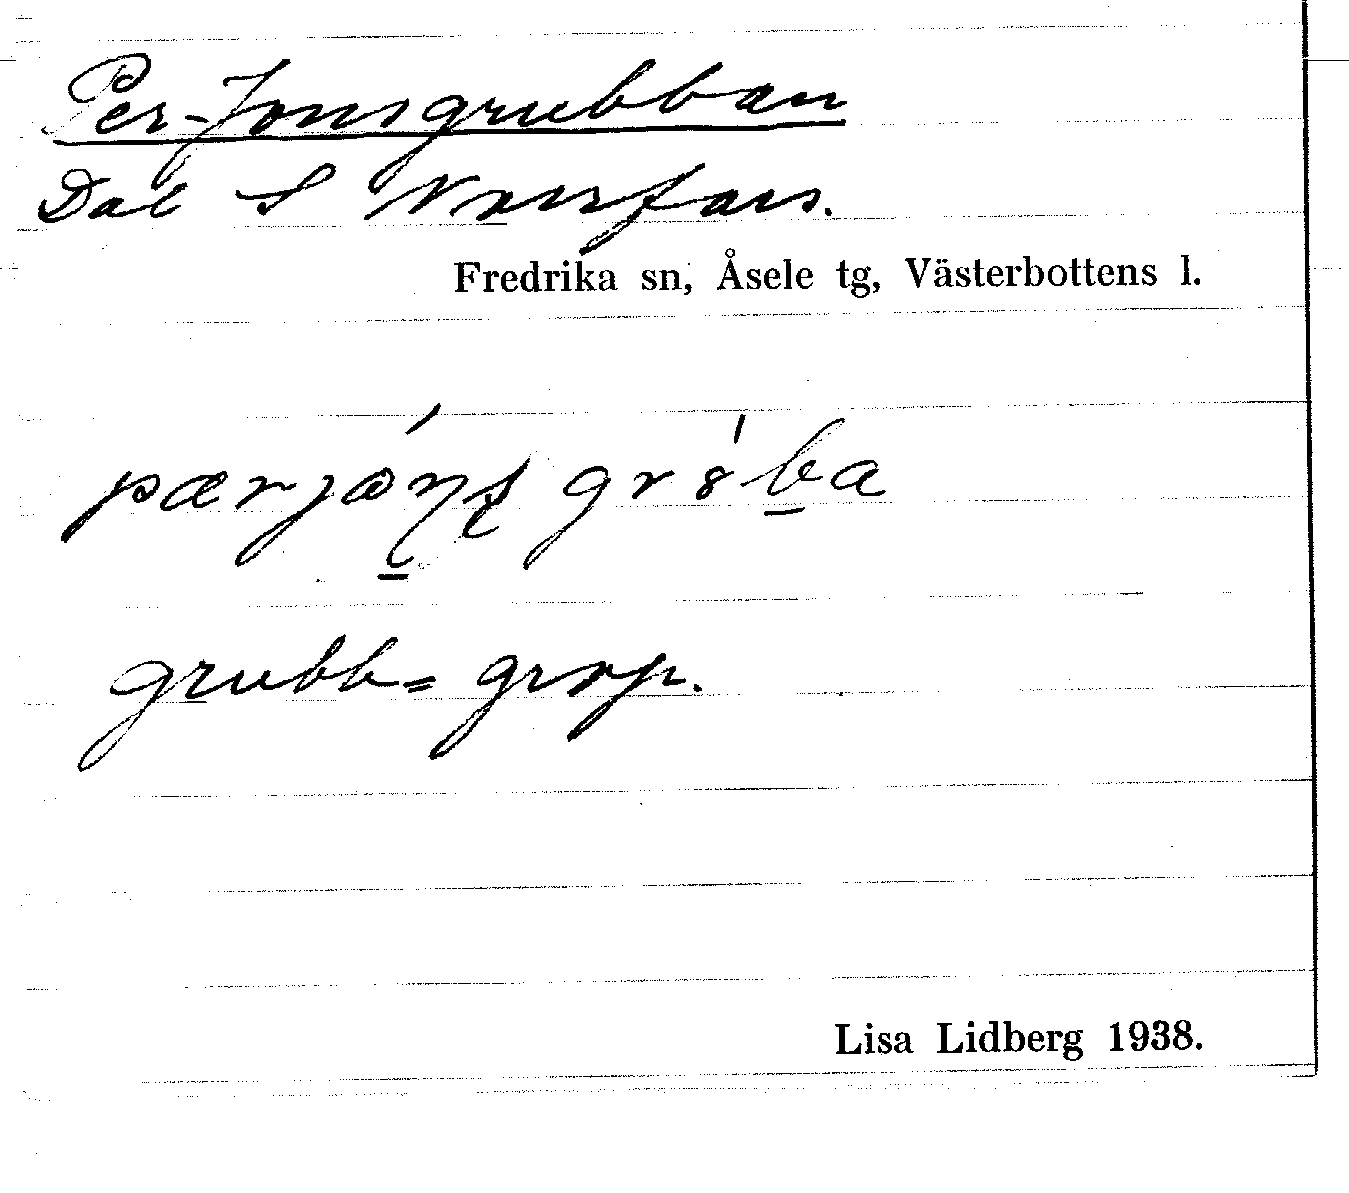 Per-Jonsgrubban
Dal S Norrfors.
Fredrika sn, Åsele tg, Västerbottens l.
grubb = grop.
Lisa Lidberg 1938.